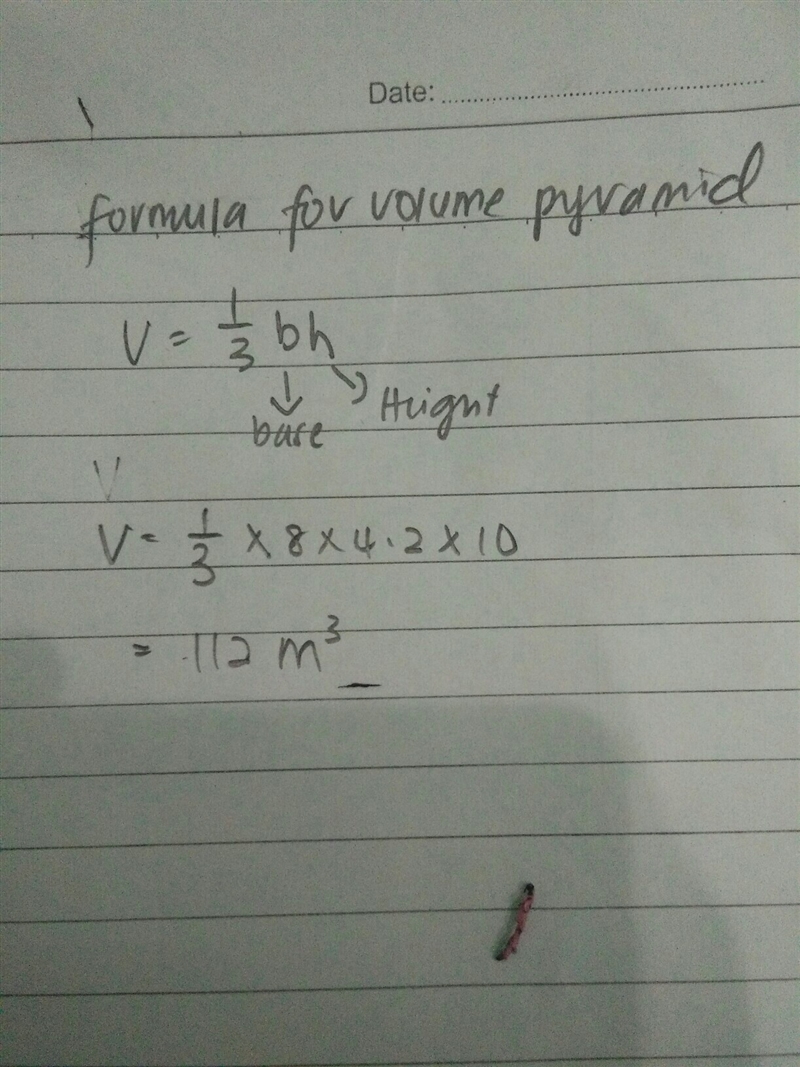 Date:
formula for volume pyramid
V = 1/3 bh
base Height
V
V = 1/3 × 8 × 4.2 × 10
= 112 m³